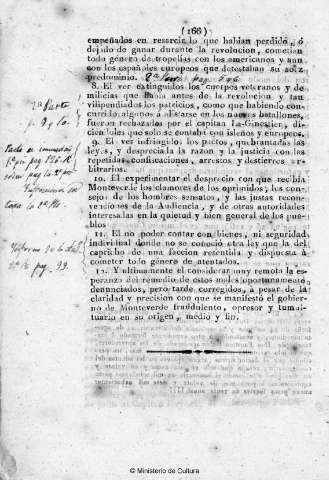 (166)
empeñados en resarcir lo que habian perdido, ó
dejado de ganar durante la revolucion, cometian
todo género de tropelías con los americanos y aun
con los españoles europeos que detestaban su soéz
predominio.
8. El ver extinguidos los cuerpos veteranos y de
milicias que habia antes de la revolucion y tan
vilipendiados los patricios, como que habiendo con-
currido algunos a alistarse en los nuevos batallones,
fueron rechazados por el capitan La-Gineguen, di-
cien loles que solo se contaba con isleños y europeos.
9. El ver infringido los pactos, quebrantadas las
leyes, y despreciada la razon y la justicia con las
repetidas confiscaciones, arrestos y destierros ar-
bitrarios.
10. El experimentar el desprecio con que recibia
Monteverde los clamores de los oprimidos, los con-
sejos de los hombres sensatos, y las justas recon-
venciones de la Audiencia, y de otras autoridades
interesadas en la quietud y bien general de los pue-
blos
11. El no poder contar con bienes, ni seguridad
individual donde no se conoció otra ley que la del
capricho de una faccion resentida y dispuesta á
cometer todo género de atentados.
12. Y ultimamente el considerar muy remota la es-
peranza del remedio de estos males oportunamente
denunciados, pero tarde corregidos, á pesar de la
claridad y precision con que se manifestó el gobier-
no de Monteverde fraudulento, opresor y tumul-
tuario en su origen, medio y fin.
2ª Parte
p. 9 y 10.
pag. 99.
© Ministerio de Cultura